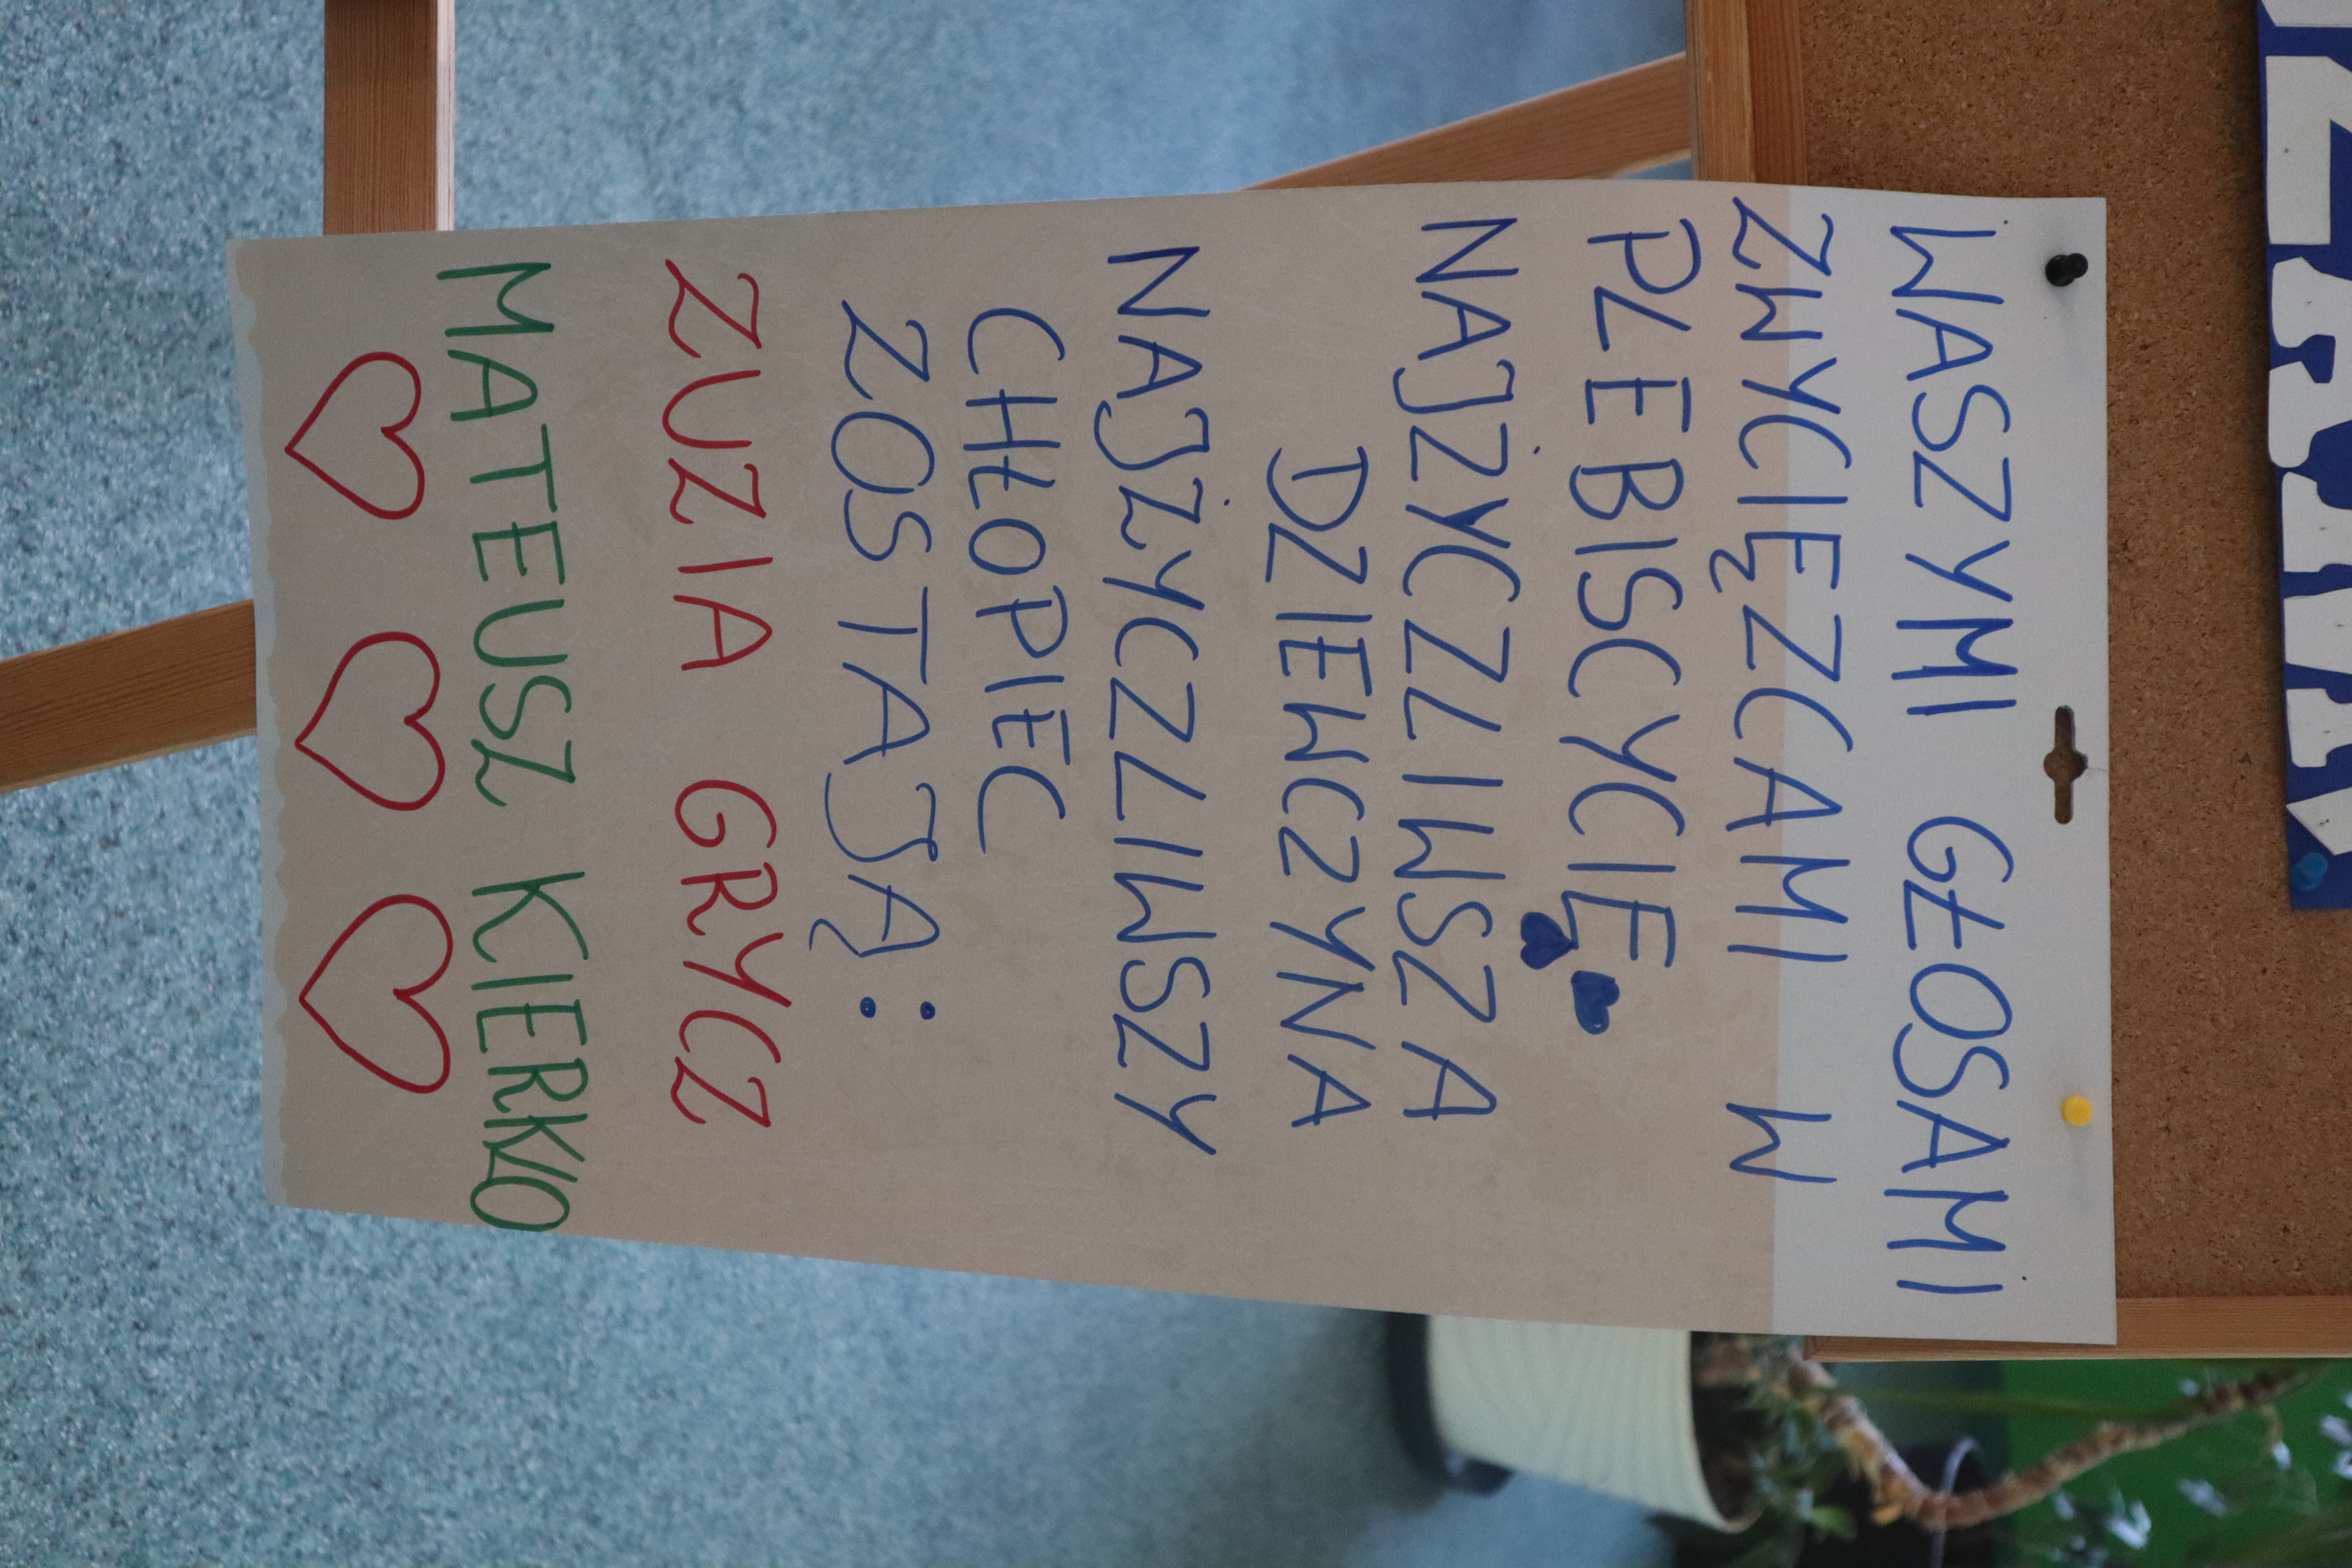 WASZYMI GŁOSAMI
ZWYCIĘZCAMI W
PLEBISCYCIE
NAJŻYCZLIWSZA
DZIEWCZYNA
NAJŻYCZLIWSZY
CHŁOPIEC
ZOSTAJĄ:
ZUZIA GRYCZ
MATEUSZ KIERKLO